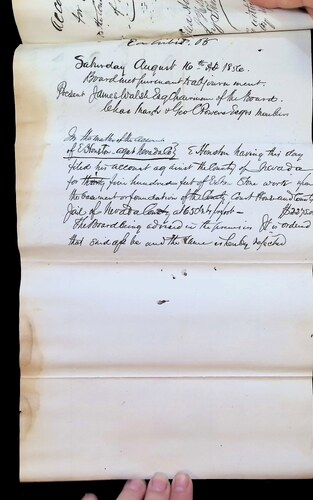 Saturday August 16th AD 1856.
Board met pursuant to adjournment.
Present James Walsh Esq Chairman of the Board.
Chas Marsh & Geo C Powers Esqrs members
In the matter of the account
of E Houston agst Nevada Coy E Houston having this day
filed his account against the County of Nevada
for four hundred feet of Extra Stone work upon
the basement or foundation of the County Court House and County
Jail of Nevada County at 65 cts pr foot —
The Board being advised in the premises It is ordered
that said a/c be and the same is hereby rejected